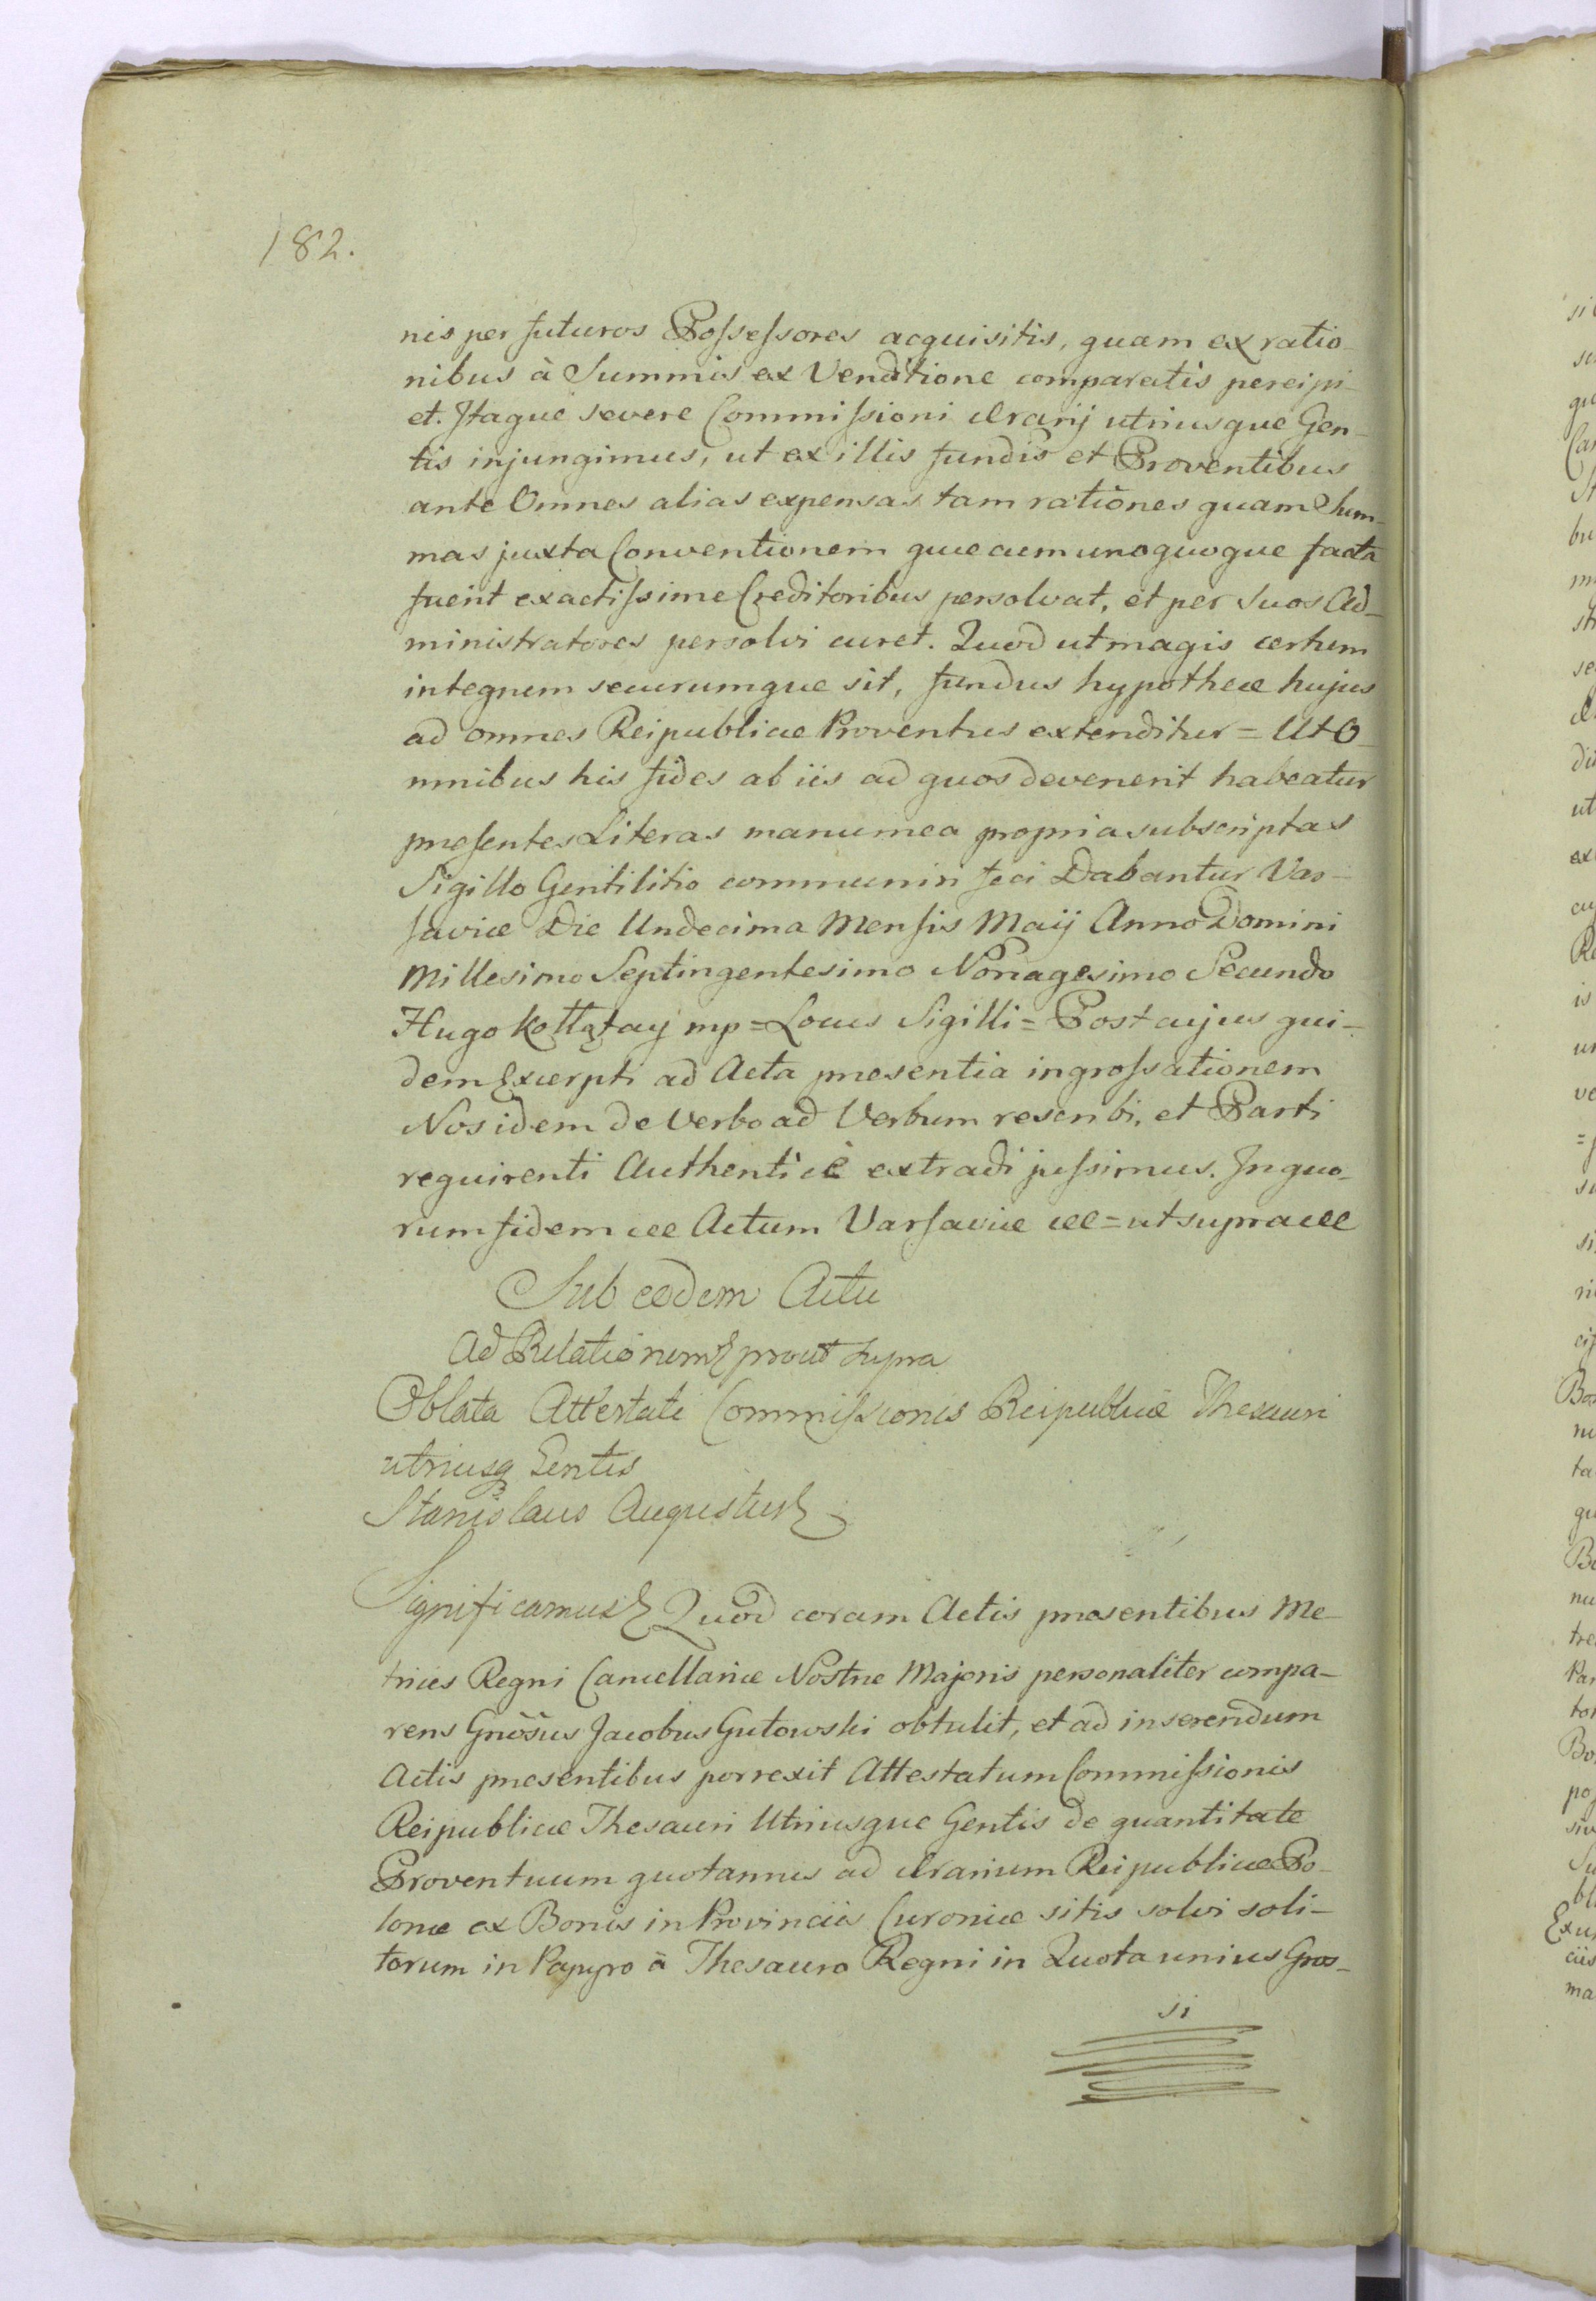 182.
nis per futuros Possessores acquisitis, quam ex ratio-
nibus à Summis ex Venditione comparatis percipi-
et. Itaque severe Commissioni Ærarij utriusque Gen-
tis injungimus, ut ex illis fundis et Proventibus
ante Omnes alias expensas tam rationes quam Sum-
mas juxta Conventionem quæ cum unoquoque facta
fuerit exactissime Creditoribus persolvat, et per suos Ad-
ministratores persolvi curet. Quod ut magis certum
integrum securumque sit, fundus hypothecæ hujus
ad omnes Reipublicæ Proventus extenditur = Ut O-
mnibus his fides ab iis ad quos devenerit habeatur
præsentes Literas manu mea propria subscriptas
Sigillo Gentilitio communiri feci Dabantur Var-
saviæ Die Undecima Mensis Maij Anno Domini
Millesimo Septingentesimo Nonagesimo Secundo
Hugo Kołłątay mp = Locus Sigilli = Post cujus qui-
dem Excerpti ad Acta præsentia ingrossationem
Nos idem de Verbo ad Verbum rescribi, et Parti
requirenti Authenticè extradi jussimus. In quo-
rum fidem &c Actum Varsaviæ &c = ut supra &c
Sub eodem Actu
Ad Relationem & prout supra
Oblata Attestati Commissionis Reipublicæ Thesauri
utriusq Gentis
Stanislaus Augustus &
Significamus & Quod coram Actis præsentibus Me-
trices Regni Cancellariæ Nostræ Majoris personaliter compa-
rens Gnosus Jacobus Gutowski obtulit, et ad inserendum
Actis præsentibus porrexit Attestatum Commissionis
Reipublicæ Thesauri Utriusque Gentis de quantitate
Proventuum quotannis ad Ærarium Reipublicæ Po-
lonæ ex Bonis in Provinciis Curoniæ sitis solvi soli-
torum in Papyro à Thesauro Regni in Quota unius Gros-
si